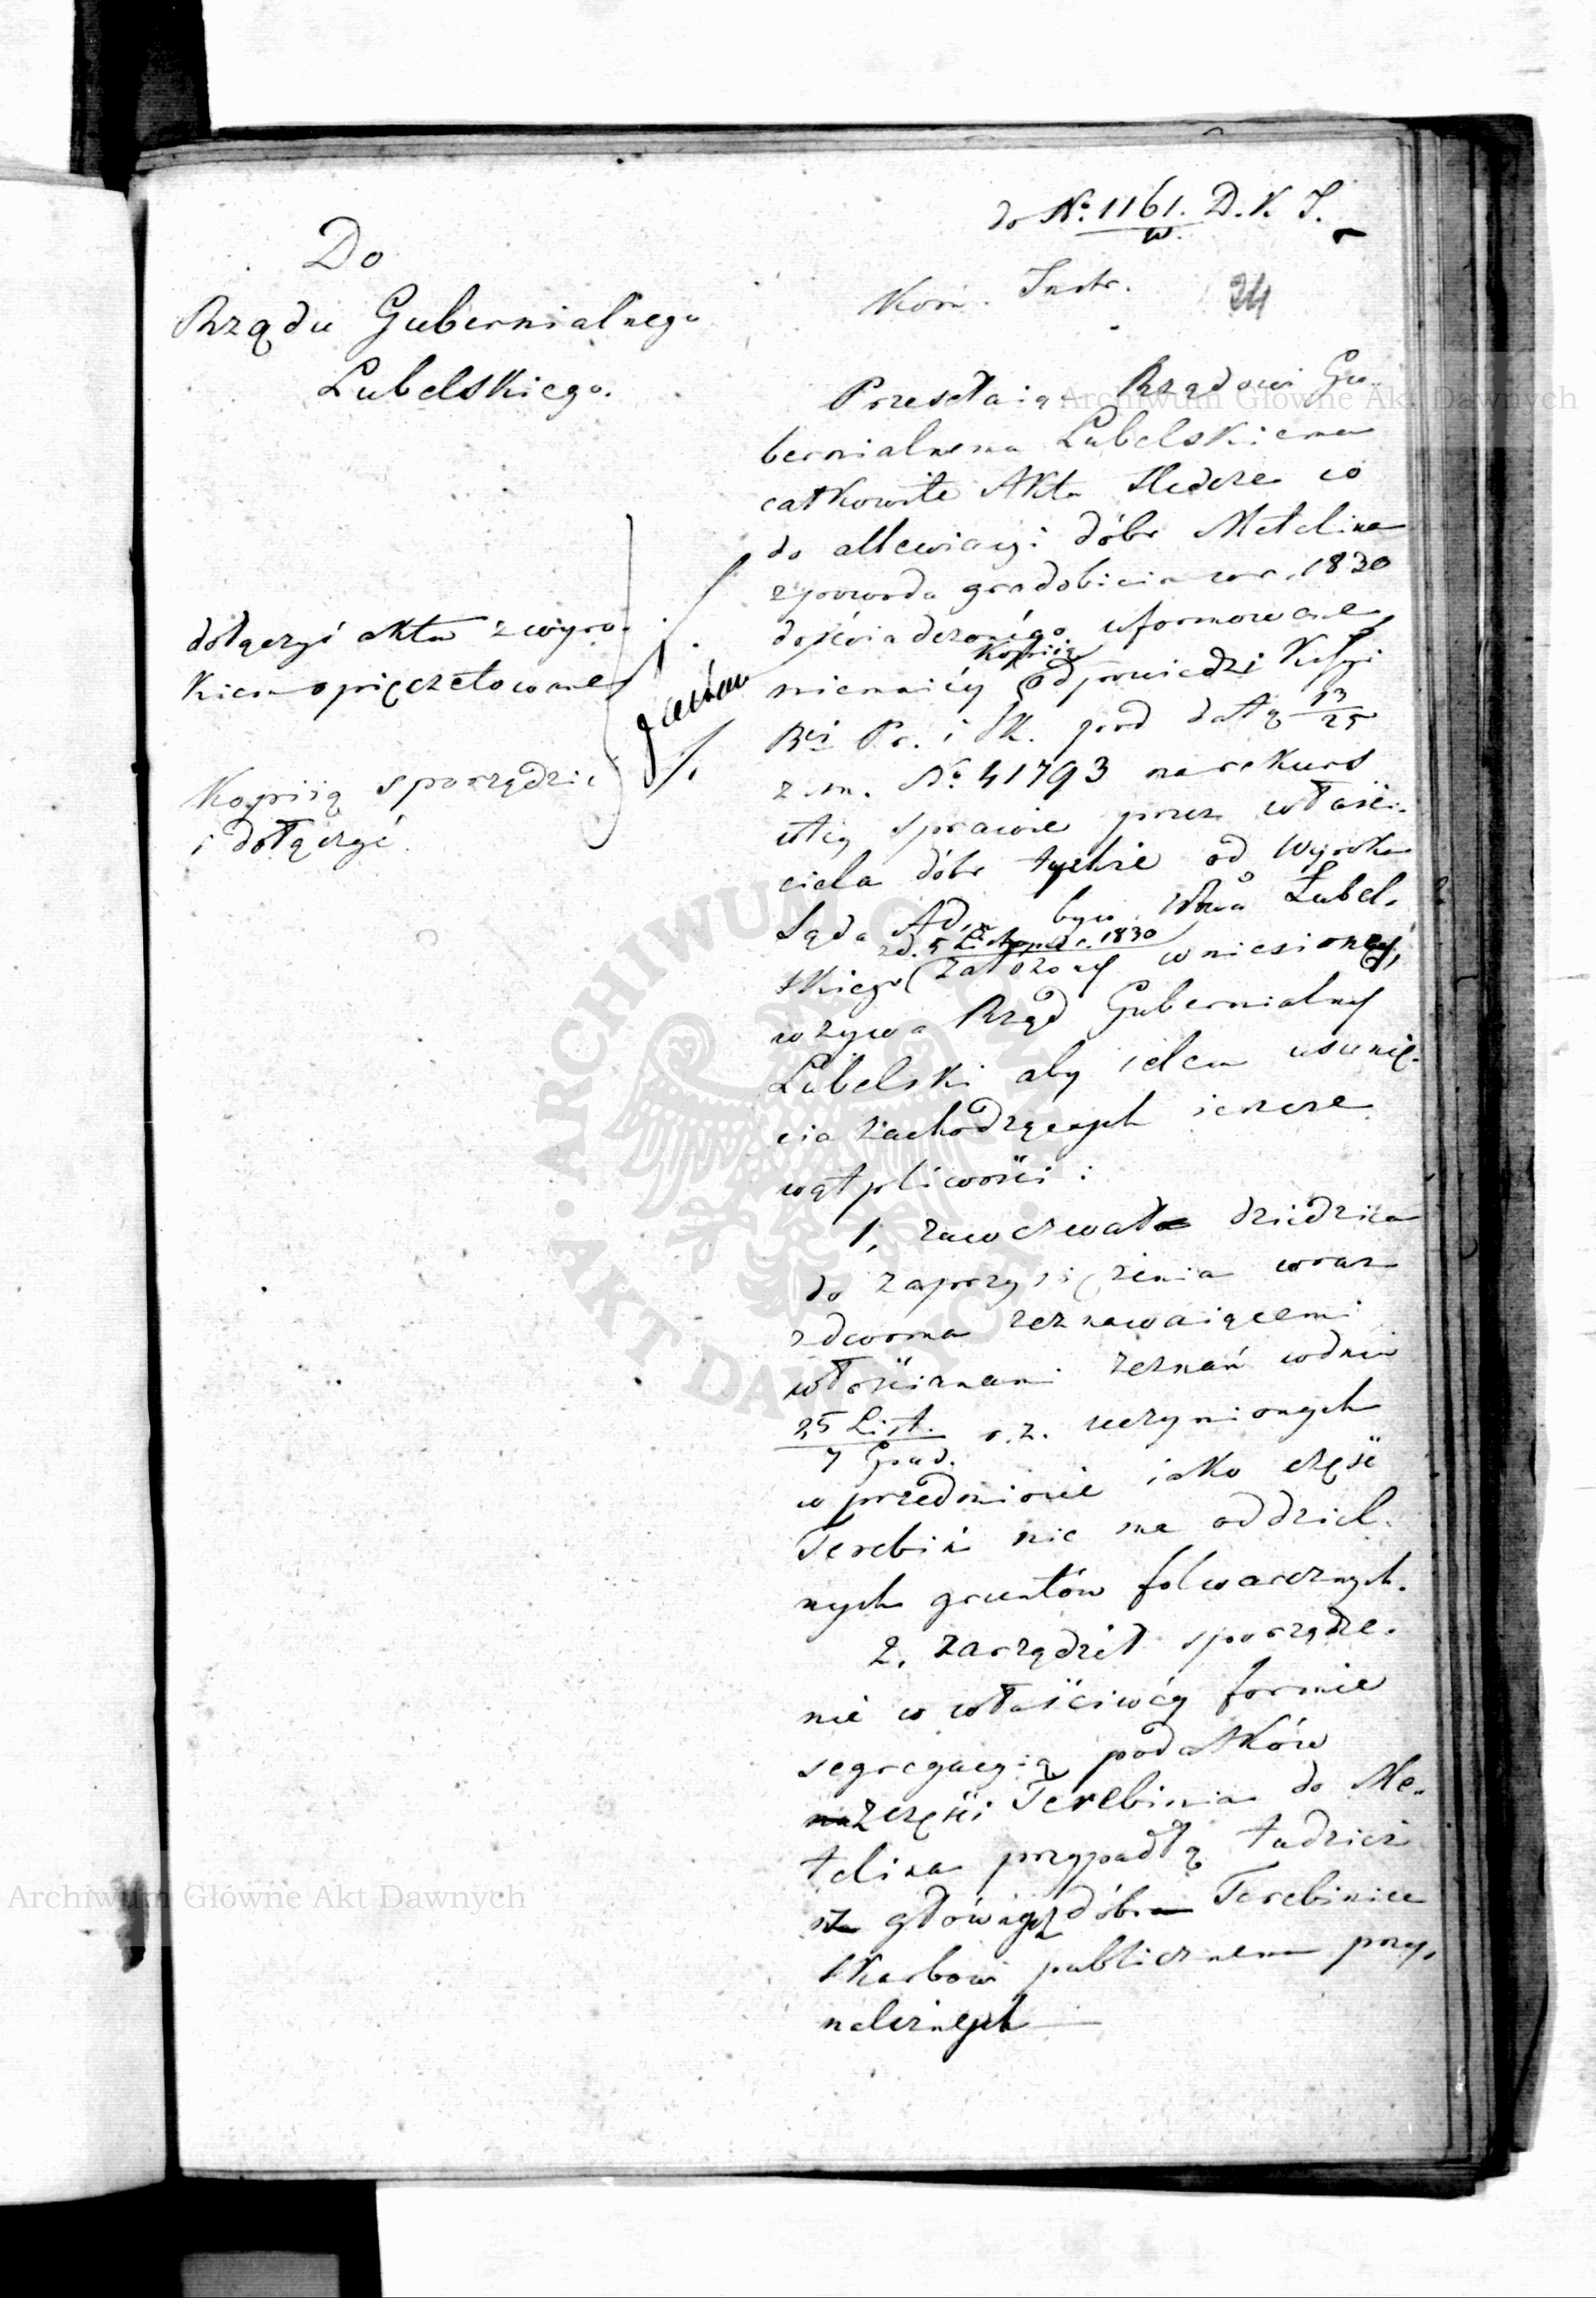 do No. 1161. D. K. S.
w.
Do
Rządu Gubernialnego
Lubelskiego.
Kom. Instr.
24
Przesełaiąc Rządowi Gu-
bernialnemu Lubelskiemu
całkowite Akta śledcze co
do allewiacyi dóbr Metelina
z powodu gradobicia w r. 1830
doświadczonego uformowane,
niemniéy Kopiią odpowiedzi Kssyi
Rei Pr. i Sk. pod datą 13/25
z. m. No 41793 na rekurs
w téy sprawie przez właści-
ciela dóbr tychże od Wyroku
Sądu Ad. byw. Wdwa Lubel-
skiego z d. 5 Listopada r. 1830 założony wniesiony,
wzywa Rząd Gubernialny
Lubelski aby celem usunię-
cia zachodzących ieszcze
wątpliwości:
1, zawezwał dziedzica
do zaprzysiężenia wraz
z dwoma zeznawaiącemi
włościanami zeznań w dniu
25 List. / 7 Grud. r. z. uczynionych
w przedmiocie iako część
Terebiń nie ma oddziel-
nych gruntów folwarcznych.
2. zarządził sporządze-
nie w właściwéy formie
segregacyią podatków
z części Terebinia do Me-
telina przypadłą tudzież
z głównych dóbr Terebiniec
Skarbowi publicznemu przy-
należnych
dołączyć akta z wyro-
kiem opieczętowane
Kopiią sporządzić
i dołączyć.
ARCHIWUM GŁÓWNE AKT DAWNYCH
Archiwum Główne Akt Dawnych
Archiwum Główne Akt Dawnych